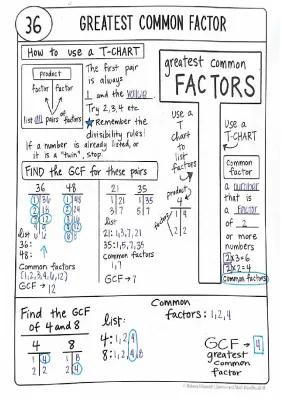 36
GREATEST COMMON FACTOR
How to use a T-CHART
product
factor factor
list all pairs of factors
The first pair
is always
1 and the
Try 2, 3, 4 etc
Remember the
divisibility rules!
If a number is already listed, or
it is a "twin", stop.
FIND the GCF for these pairs
36 48 21 35
1 36 1 48 1 21 1 35
2 2 24 3 7 5 7
3 12 3 16
4 4 12
6 8
list: list:
36: 21: 1,3,7,21
48: 35: 1,5,7,35
Common factors common factors
(1,2,3,4,6,12) 1,7
GCF → 12 GCF → 7
greatest common
FACTORS
use a
T
chart
to
list
factors
product
4
1 4
2 2
use a
T-CHART
Common
factor
a number
that is
a factor
of 2
or more
numbers
2x3=6
2x2=4
Common factors
Find the GCF
of 4 and 8
4 8
1 4 1 8
2 2 2 4
list:
4: 1,2,4
8: 1,2,4,8
Common
factors: 1,2,4
GCF → 4
greatest
common
factor